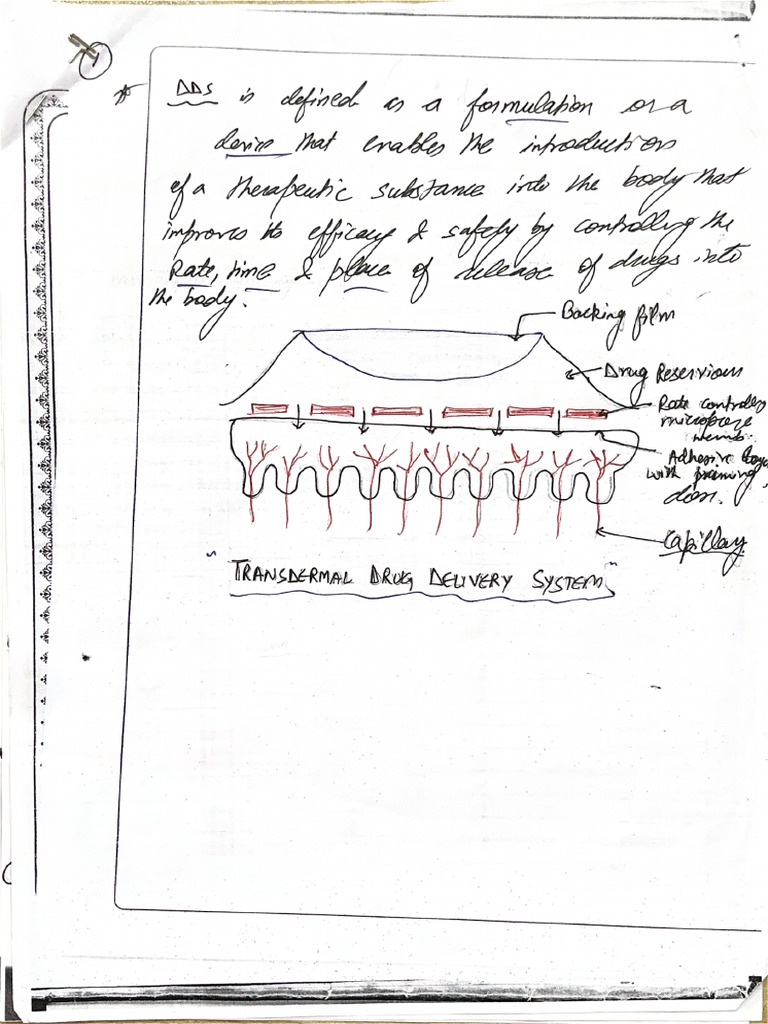 1
* DDS is defined as a formulation or a
device that enables the introduction
of a therapeutic substance into the body that
improves its efficacy & safety by controlling the
Rate, time & place of release of drugs into
the body.
Backing film
Drug Reserviour
Rate controlling
microporoze
memb
Adhesive layer
with priming
dose.
Capillary
"TRANSDERMAL DRUG DELIVERY SYSTEM"